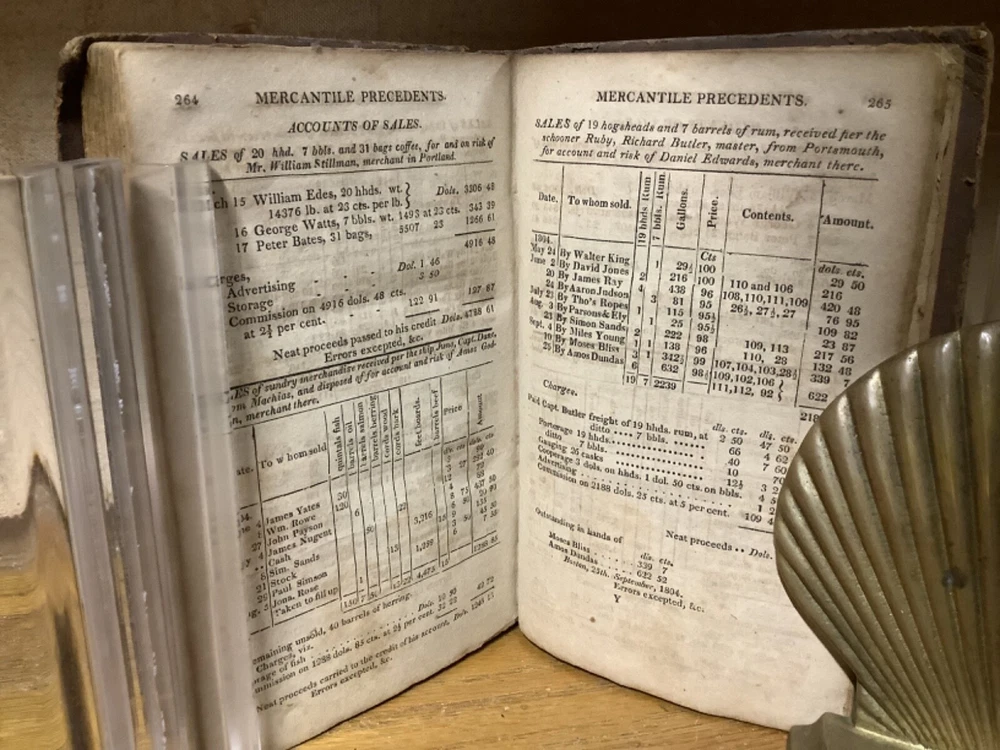 264 MERCANTILE PRECEDENTS.
ACCOUNTS OF SALES.
SALES of 20 hhd. 7 bbls. and 31 bags coffee, for and on risk of
Mr. William Stillman, merchant in Portland.
ch 15 William Edes, 20 hhds. wt. } Dols. 3306 48
14376 lb. at 23 cts. per lb. }
16 George Watts, 7 bbls. wt. 1493 at 23 cts. 343 39
17 Peter Bates, 31 bags, 5507 23 1266 61
4916 48
rges,
Advertising - - - Dol. 1 46
Storage - - - 3 50
Commission on 4916 dols. 48 cts.
at 2½ per cent. - - 122 91 127 87
Neat proceeds passed to his credit Dols. 4788 61
Errors excepted, &c.
ES of sundry merchandize received per the ship Juno, Capt. Dute,
om Machias, and disposed of for account and risk of Amos God-
n, merchant there.
ate. To whom sold quintals fish barrels oil barrels salmon barrels herring cords wood cords bark feet boards. barrels beef Price Amount
James Yates 30
Wm. Rowe 120
27 John Payson 6
James Nugent
Cash 50 22
Sim. Sands 3,216
Stock 15
Paul Simson 1,299
Jona. Rose 1
Taken to fill up
1288 85
emaining unsold, 40 barrels of herring.
Charges, viz.
orage of fish
mmission on 1288 dols. 85 cts. at 2½ per cent.
Neat proceeds carried to the credit of his account, Dols.
Errors excepted, &c.
MERCANTILE PRECEDENTS. 265
SALES of 19 hogsheads and 7 barrels of rum, received per the
schooner Ruby, Richard Butler, master, from Portsmouth,
for account and risk of Daniel Edwards, merchant there.
Date. To whom sold. 19 hhds. Rum 7 bbls. Rum. Gallons. Price. Contents. Amount.
1804. Cts dols. cts.
May 24 By Walter King 1 29½ 100 29 50
June 2 By David Jones 2 216 100 110 and 106 216
20 By James Ray 4 438 96 108,110,111,109 420 48
24 By Aaron Judson 3 81 95 26½, 27½, 27 76 95
July 27 By Tho's Ropes 1 115 95½ 109 82
Aug. 3 By Parsons & Ely 1 25 95½ 23 87
23 By Simon Sands 2 222 98 109, 113 217 56
Sept. 4 By Miles Young 1 1 138 96 110, 28 132 48
19 By Moses Bliss 3 1 342½ 99 107,104,103,28½ 339 7
25 By Amos Dundas 6 632 98½ 109,102,106 } 111,112, 92 } 622
19 7 2239
218
Charges. dls. cts. dls. cts.
Paid Capt. Butler freight of 19 hhds. rum, at 2 50 47 50
ditto .... 7 bbls. 66 4 62
Porterage 19 hhds. 40 7 60
ditto 7 bbls. 10 70
Gauging 26 casks 12½ 3 2
Cooperage 3 dols. on hhds. 1 dol. 50 cts. on bbls. 4 5
Advertising 1 2
Commission on 2188 dols. 25 cts. at 5 per cent. 109 4
Neat proceeds .. Dols.
Outstanding in hands of dls. cts.
Moses Bliss 339 7
Amos Dundas 622 52
Boston, 25th. September, 1804.
Errors excepted, &c.
Y